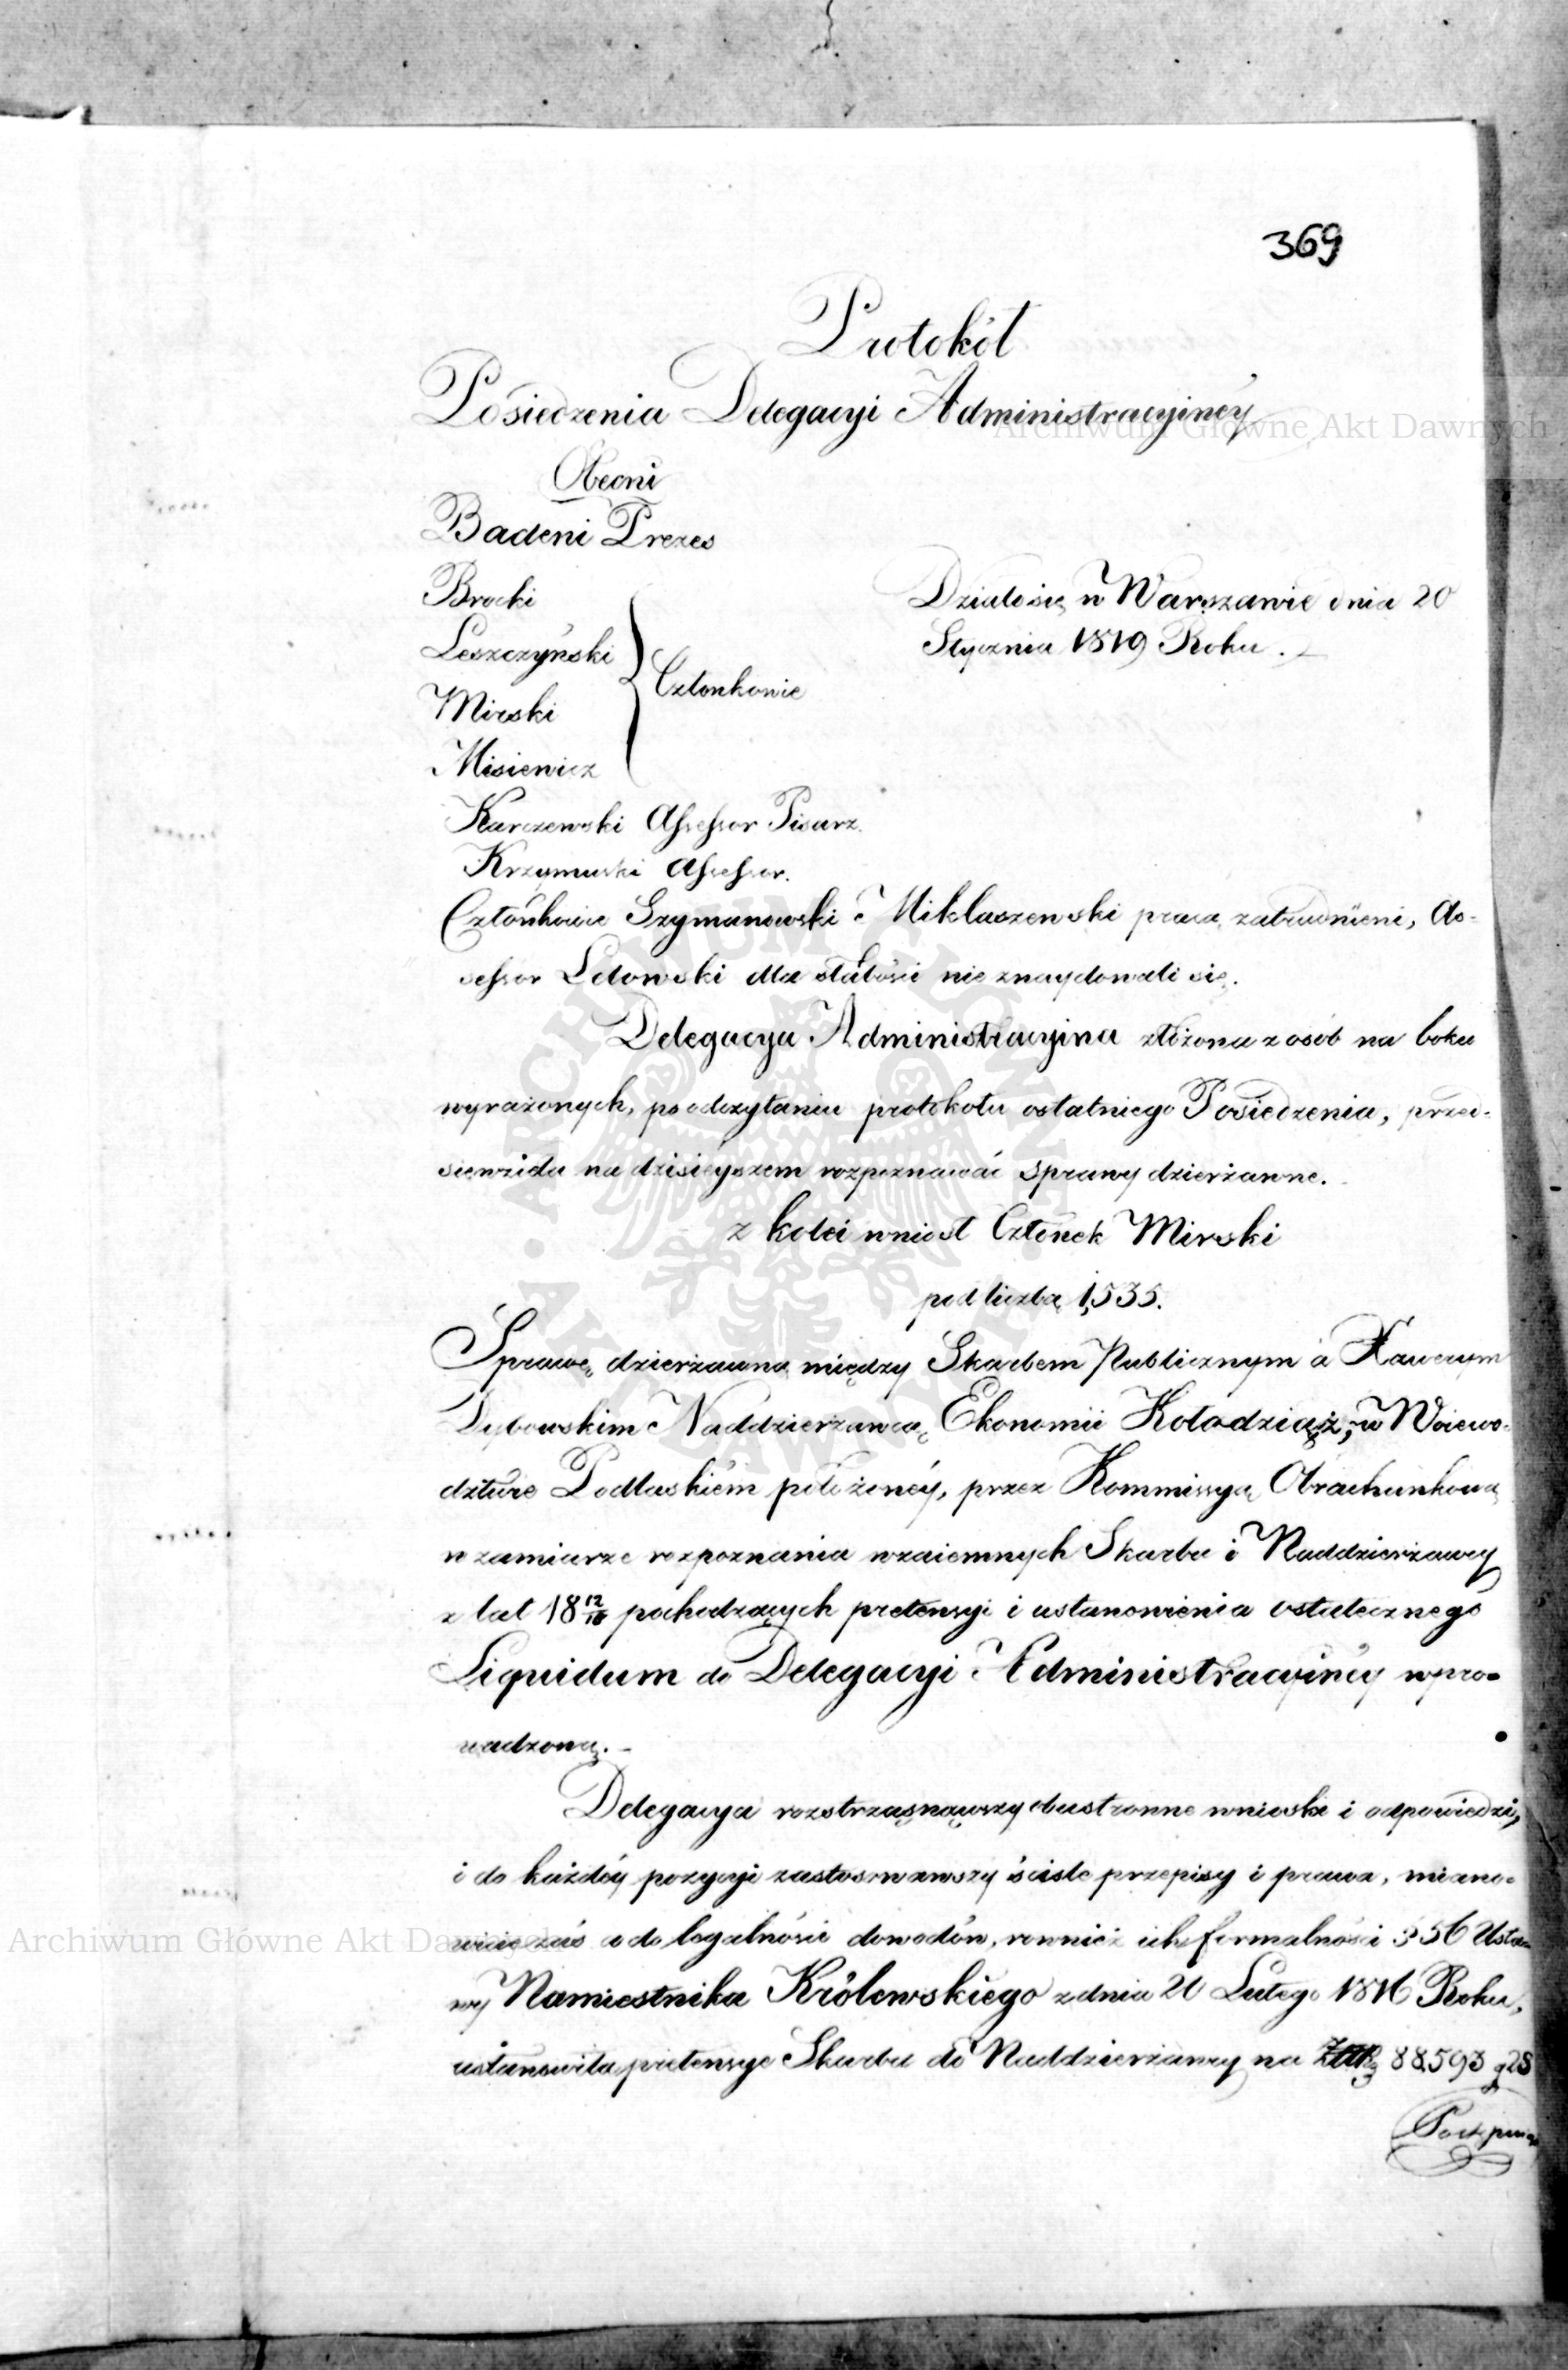 369
Protokół
Posiedzenia Delegacyi Administracyinéy
Obecni
Badeni Prezes
Brocki
Leszczyński
Mirski
Misiewicz
Członkowie
Działo się w Warszawie dnia 20
Stycznia 1819 Roku.
Karczewski Assessor Pisarz.
Krzymuski Assessor.
Członkowie Szymanowski i Miklaszewski pracą zatrudnieni, As-
sessor Letowski dla słabości nie znaydowali się.
Delegacya Administracyina złożona z osób na boku
wyrażonych, po odczytaniu protokołu ostatniego Posiedzenia, przed-
sięwzięła na dzisieyszem rozpoznawać sprawy dzierżawne.
z kolei wniosł Członek Mirski
pod liczbą 1,535.
Sprawę dzierżawną między Skarbem Publicznym a Xawerym
Dybowskim Naddzierżawcą Ekonomii Kołodziąż, w Woiewo-
dztwie Podlaskiém położonéy, przez Kommissyą Obrachunkową
w zamiarze rozpoznania wzaiemnych Skarbu i Naddzierżawcy
z lat 18 12/18 pochodzących pretensyi i ustanowienia ostatecznego
Liquidum do Delegacyi Administracyinéy wpro-
wadzoną.
Delegacya roztrząsnąwszy obustronne wnioski i odpowiedzi,
i do każdéy pozycyi zastosowawszy ściśle przepisy i prawa, miano-
wicie zaś co do legalności dowodów, rownież ich formalności § 56 Usta-
wy Namiestnika Królewskiego z dnia 20 Lutego 1816 Roku,
ustanowiła pretensye Skarbu do Naddzierżawcy na 88593 g 28
Archiwum Główne Akt Dawnych